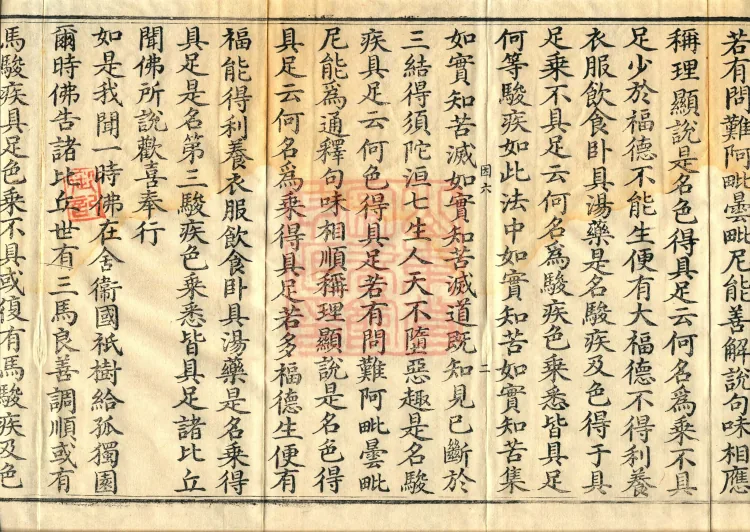 若有問難阿毗曇毗尼能善解說句味相應
稱理顯說是名色得具足云何名為乘不具
足少於福德不能生便有大福德不得利養
衣服飲食卧具湯藥是名駿疾及色得于具
足乘不具足云何名為駿疾色乘悉皆具足
何等駿疾如此法中如實知苦如實知苦集
因六 二
如實知苦滅如實知苦滅道既知見已斷於
三結得須陀洹七生人天不墮惡趣是名駿
疾具足云何色得具足若有問難阿毗曇毗
尼能為通釋句味相順稱理顯說是名色得
具足云何名為乘得具足若多福德生便有
福能得利養衣服飲食卧具湯藥是名乘得
具足是名第三駿疾色乘悉皆具足諸比丘
聞佛所說歡喜奉行
如是我聞一時佛在舍衛國祇樹給孤獨園
爾時佛告諸比丘世有三馬良善調順或有
馬駿疾具足色乘不具或復有馬駿疾及色